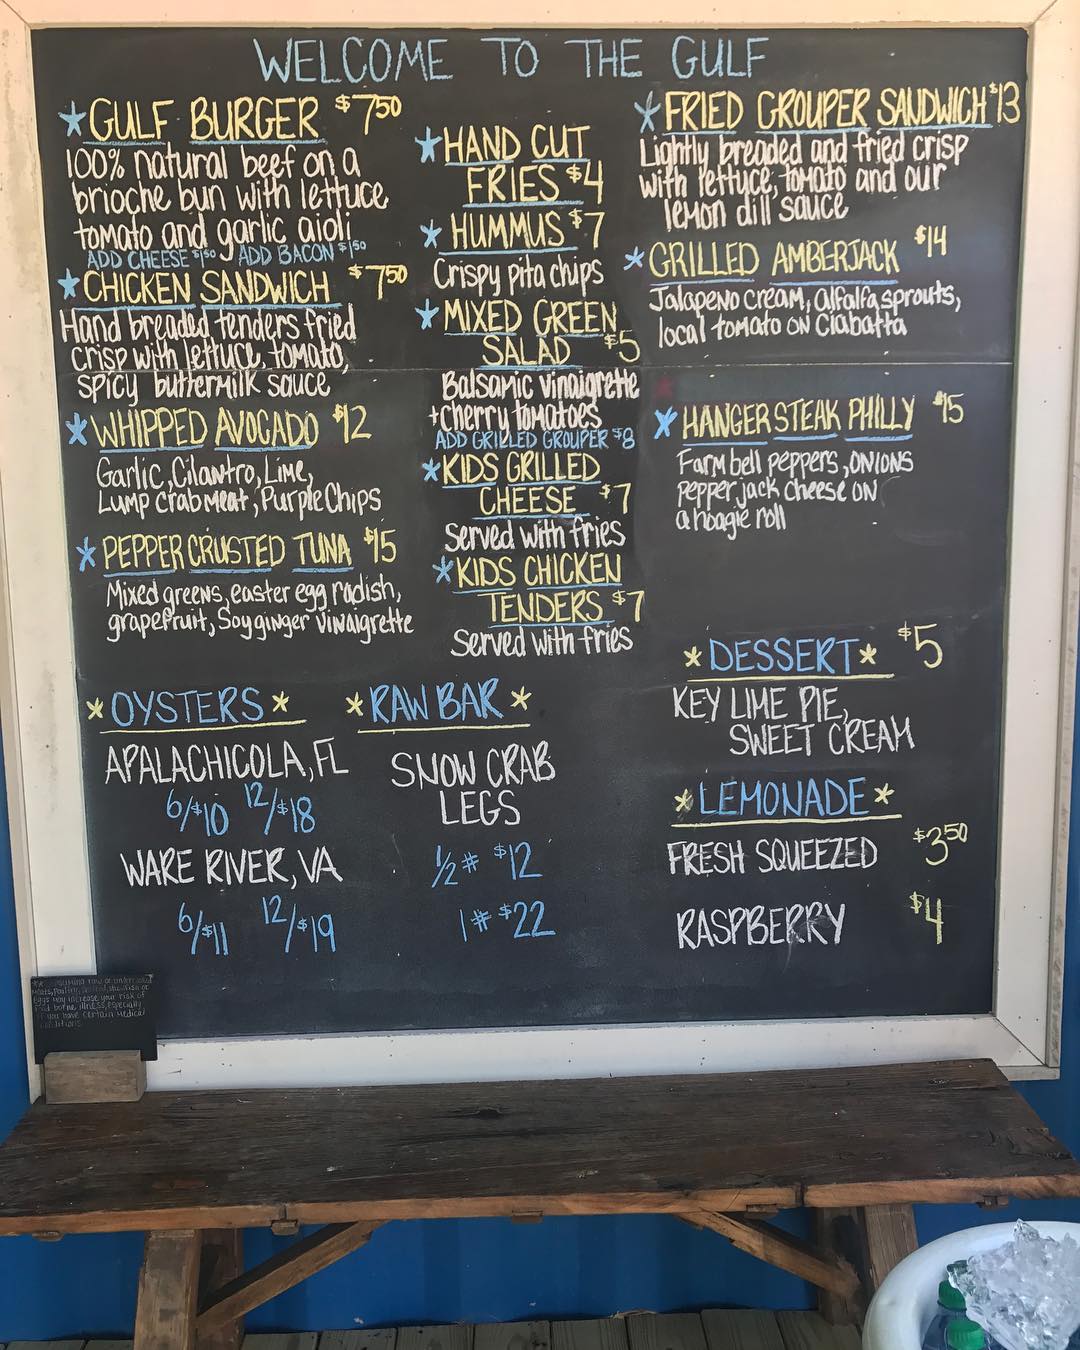 WELCOME TO THE GULF
*GULF BURGER $7.50
100% natural beef on a
brioche bun with lettuce
tomato and garlic aioli
ADD CHEESE $1.50 ADD BACON $1.50
*CHICKEN SANDWICH $7.50
Hand breaded tenders fried
crisp with lettuce, tomato,
spicy buttermilk sauce
*WHIPPED AVOCADO $12
Garlic, Cilantro, Lime,
Lump Crabmeat, Purple Chips
*PEPPER CRUSTED TUNA $15
Mixed greens, easter egg radish,
grapefruit, Soy ginger vinaigrette
*HAND CUT
FRIES $4
*HUMMUS $7
Crispy pita chips
*MIXED GREEN
SALAD $5
Balsamic vinaigrette
+cherry tomatoes
ADD GRILLED GROUPER $8
*KIDS GRILLED
CHEESE $7
Served with fries
*KIDS CHICKEN
TENDERS $7
Served with fries
*FRIED GROUPER SANDWICH $13
Lightly breaded and fried crisp
with lettuce, tomato and our
lemon dill sauce
*GRILLED AMBERJACK $14
Jalapeno cream, alfalfa sprouts,
local tomato on Ciabatta
*HANGER STEAK PHILLY $15
Farm bell peppers, onions
pepper jack cheese on
a hoagie roll
*OYSTERS*
APALACHICOLA, FL
6/$10 12/$18
WARE RIVER, VA
6/$11 12/$19
*RAW BAR*
SNOW CRAB
LEGS
1/2# $12
1# $22
*DESSERT* $5
KEY LIME PIE,
SWEET CREAM
*LEMONADE*
FRESH SQUEEZED $3.50
RASPBERRY $4
raw or undercooked
meats, shellfish or
eggs may increase your risk of
food borne illness, especially
if you have certain medical
conditions